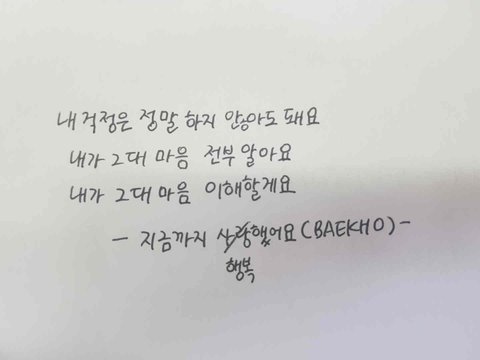 내 걱정은 정말 하지 않아도 돼요
내가 그대 마음 전부 알아요
내가 그대 마음 이해할게요
- 지금까지 사랑했어요(BAEKHO) -
행복